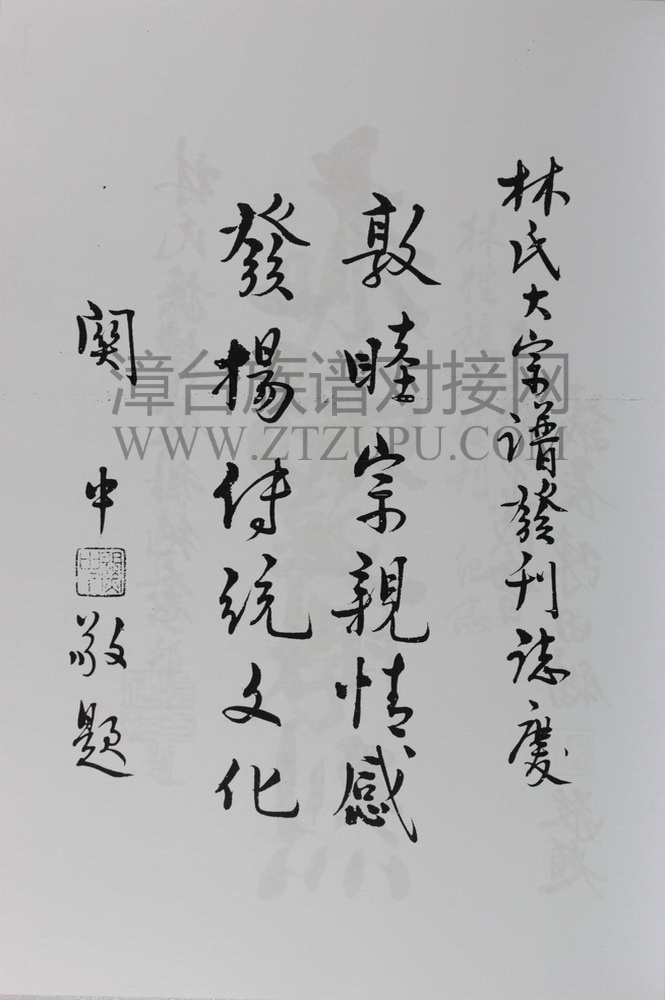 林氏大宗譜發刊誌慶
敦睦宗親情感
發揚傳統文化
關中敬題
漳台族谱对接网
WWW.ZTZUPU.COM